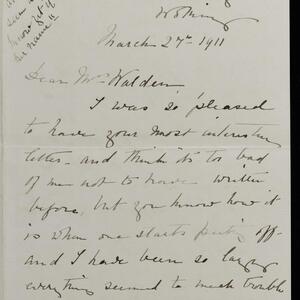 Woking
March 27th 1911
Dear Mrs Walden,
I was so pleased
to have your most interesting
letter - and think its to bad
of me not to have written
before, but you know how it
is when one starts putting off -
and I have been so lazy
everything seemed to much trouble